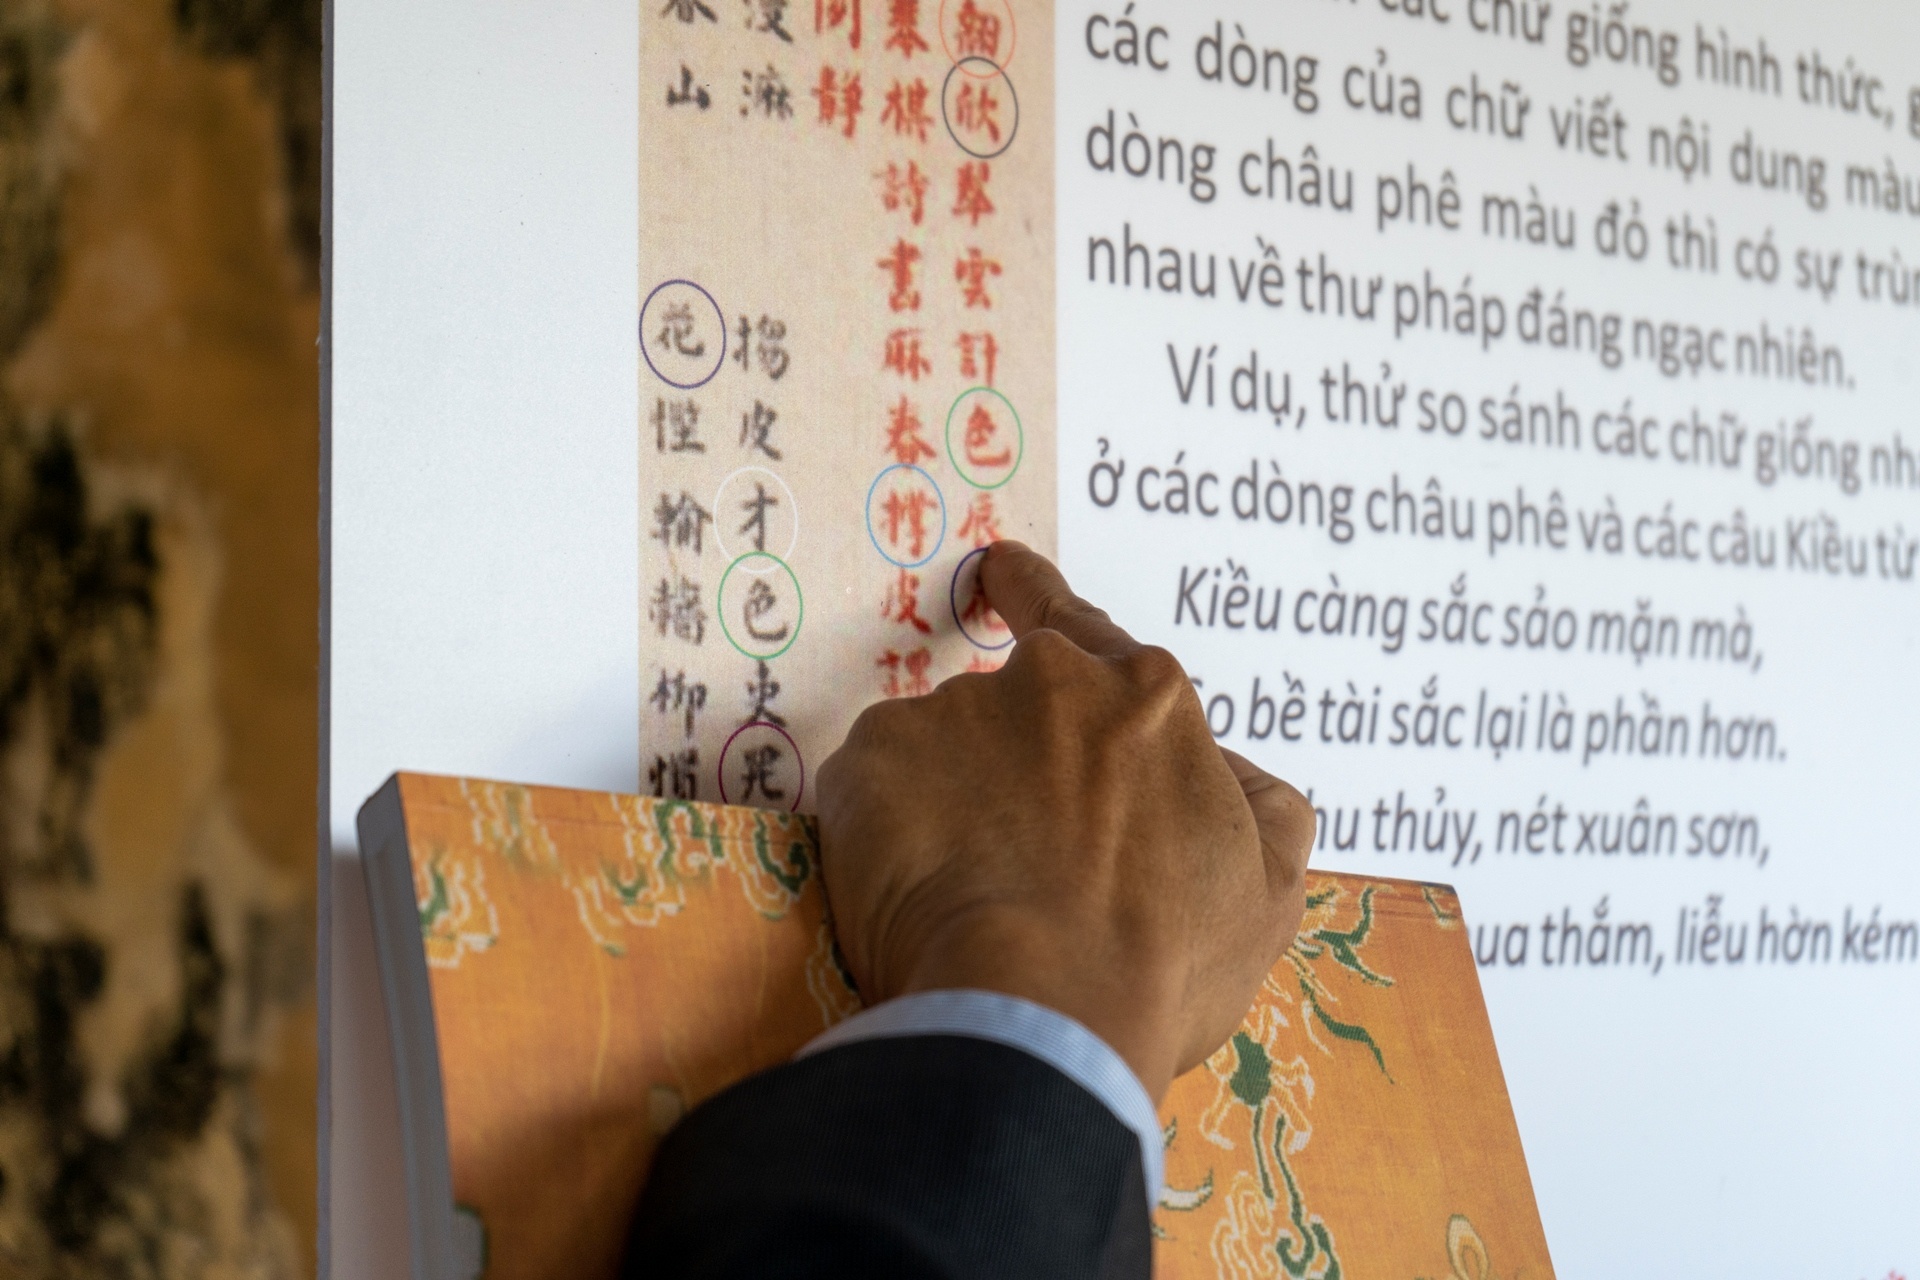 欣翠雲計色辰花
棋詩書麻春撑皮
靜
漫淋
皮才色吏
春山
花慳輸柳
các chữ giống hình thức,
các dòng của chữ viết nội dung màu
dòng châu phê màu đỏ thì có sự
nhau về thư pháp đáng ngạc nhiên.
Ví dụ, thử so sánh các chữ giống
ở các dòng châu phê và các câu Kiều từ
Kiều càng sắc sảo mặn mà,
So bề tài sắc lại là phần hơn.
thủy, nét xuân sơn,
thắm, liễu hờn kém